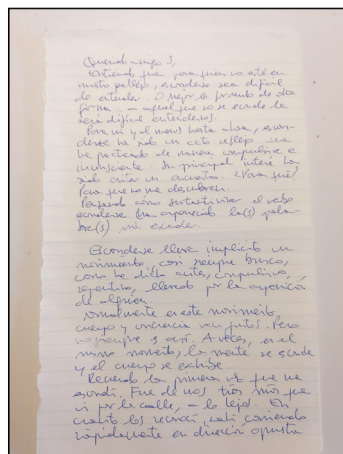 Querido amigo J,
Entiendo que para quien no esté en
nuestro pellejo, esconderse sea difícil
de entender. O mejor formulado de otra
forma: a aquel que no se esconde le
será difícil entendernos.
Para mí y al menos hasta ahora, escon-
derse ha sido un acto reflejo que
he practicado de manera compulsiva e
inconsciente. Su principal interés ha
sido evitar un encuentro. ¿Para qué?
Para que no me descubran.
Pensando cómo sustantivar el verbo
esconderse han aparecido la(s) pala-
bra(s), mi esconder.
Esconderse lleva implícito un
movimiento, casi siempre brusco,
como he dicho antes, compulsivo,
repentino, llevado por la aparición
de alguien.
Normalmente en este movimiento,
cuerpo y conciencia van juntos. Pero
no siempre es así. A veces, en el
mismo momento, la mente se esconde
y el cuerpo se exhibe.
Recuerdo la primera vez que me
escondí. Fue de unos tíos míos que
vi por la calle, a lo lejos. En
cuanto los reconocí, salí corriendo
rápidamente en dirección opuesta